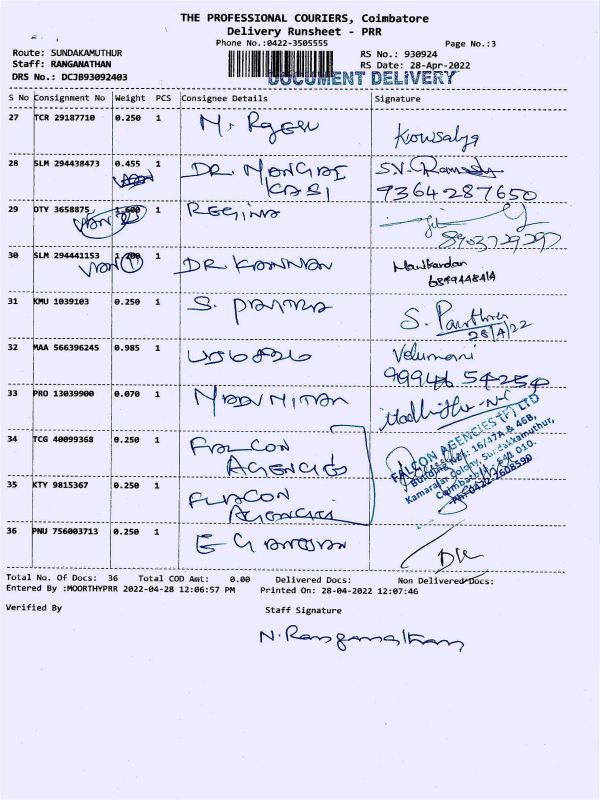 THE PROFESSIONAL COURIERS, Coimbatore
Delivery Runsheet - PRR
Phone No.:0422-3505555
Page No.:3
Route: SUNDAKAMUTHUR
RS No.: 930924
Staff: RANGANATHAN
RS Date: 28-Apr-2022
DRS No.: DCJB93092403
DOCUMENT DELIVERY
S No Consignment No Weight PCS Consignee Details Signature
27 TCR 29187710 0.250 1 M. Kowsalya
28 SLM 294438473 0.455 1 DR. MANGAI S.V.
KASI 9364287650
29 DTY 3658875 1 REGINA
VAN 8903729297
30 SLM 294441153 1.200 1 DR KANNAN Manikandan
VAN 1
31 KMU 1039103 0.250 1 S. PAVITHRA S. Pavithra
28/4/22
32 MAA 566396245 0.985 1 Velumani
99946 54254
33 PRO 13039900 0.070 1
34 TCG 40099368 0.250 1 FALCON
AGENCIES
FALCON AGENCIES (P) LTD
16/47A & 46B,
Kamarajar Colony, Sundakkamuthur,
Coimbatore - 641 010.
Ph: 0422-2608590
35 KTY 9815367 0.250 1 FLACON
AGENCIES
36 PNU 756003713 0.250 1 E
Total No. Of Docs: 36 Total COD Amt: 0.00 Delivered Docs: Non Delivered Docs:
Entered By :MOORTHYPRR 2022-04-28 12:06:57 PM Printed On: 28-04-2022 12:07:46
Verified By Staff Signature
N. Ranganathan